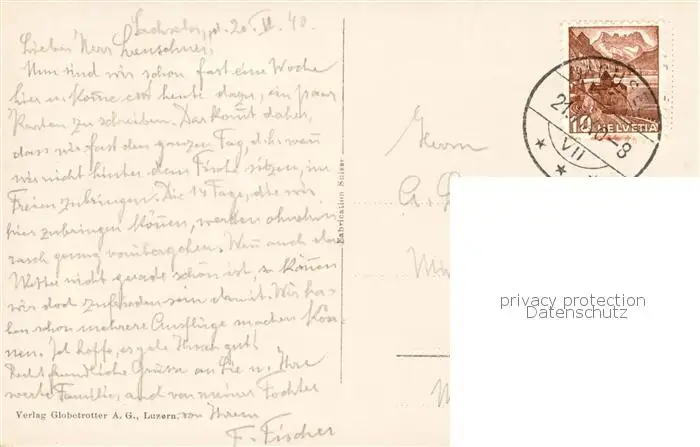 Sachseln, d. 20. VI. 40.
Lieber Herr
Nun sind wir schon fast eine Woche
hier u. komme erst heute dazu, ein paar
Karten zu schreiben. Das kommt daher,
dass wir fast den ganzen Tag, d. h. wenn
wir nicht hinter dem Tische sitzen, im
Freien zubringen. Die 14 Tage, die wir
hier zubringen können, werden ohnehin
rasch genug vorübergehen. Wenn auch das
Wetter nicht gerade schön ist, so können
wir doch zufrieden sein damit. Wir ha-
ben schon mehrere Ausflüge machen kön-
nen. Ich hoffe, es gehe Ihnen gut!
Recht freundliche Grüsse an Sie u. Ihre
werte Familie, auch von meiner Tochter
Verlag Globetrotter A. G., Luzern. von Ihrem
F. Fischer
Fabrication Suisse
Herrn
10 HELVETIA
VII
privacy protection
Datenschutz